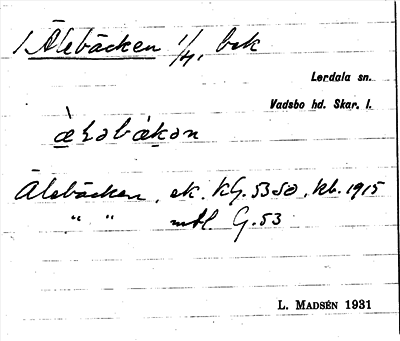 1 Ålebäcken 1/4, bck
Lerdala sn.
Vadsbo hd. Skar. l.
Ålebäcken, ek. KG. 53 SO, kb. 1915
" " mtl. G. 53
L. MADSÉN 1931